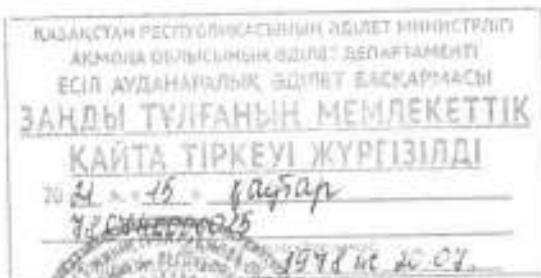 ҚАЗАҚСТАН РЕСПУБЛИКАСЫНЫҢ ӘДІЛЕТ МИНИСТРЛІГІ
АҚМОЛА ОБЛЫСЫНЫҢ ӘДІЛЕТ ДЕПАРТАМЕНТІ
ЕСІЛ АУДАНАРАЛЫҚ ӘДІЛЕТ БАСҚАРМАСЫ
ЗАҢДЫ ТҰЛҒАНЫҢ МЕМЛЕКЕТТІК
ҚАЙТА ТІРКЕУІ ЖҮРГІЗІЛДІ
20 21 " 15 " қаңтар
1978 ж 20.07.